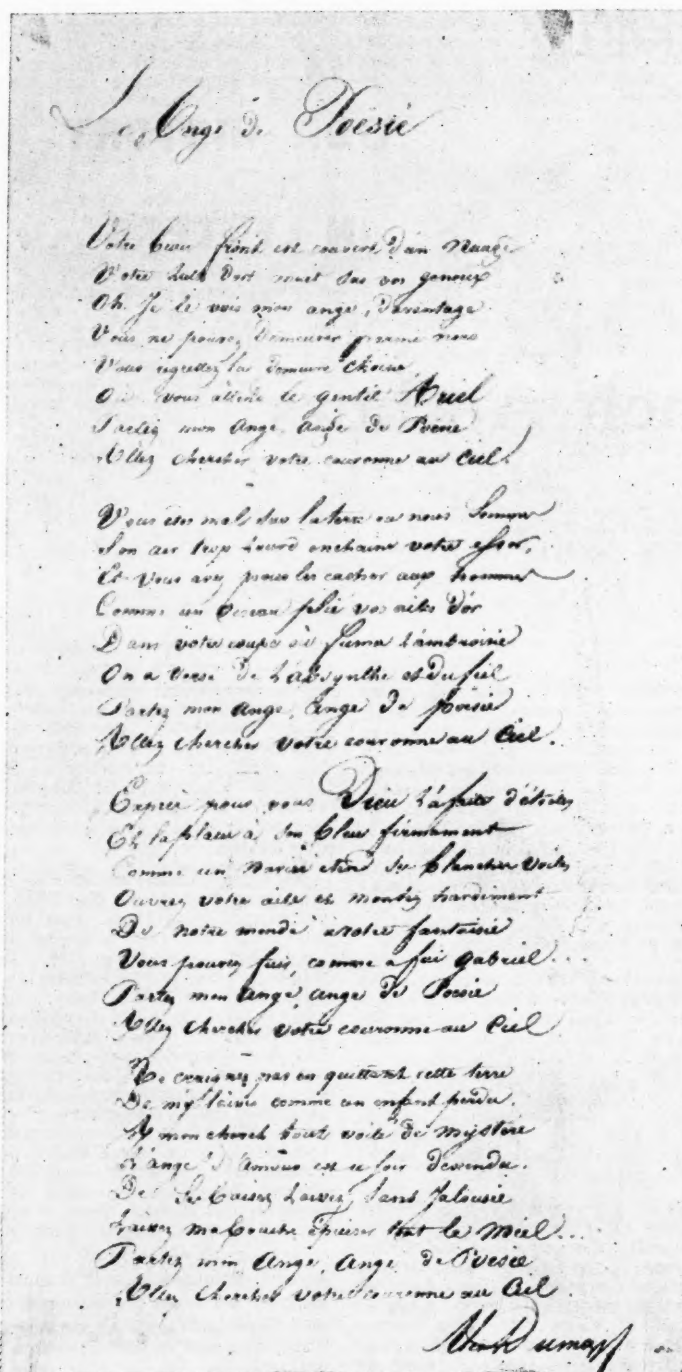 L'Ange de Poésie
Votre beau front est couvert d'un Nuage
Votre Luth dort muet sur vos genoux
Oh. Je le vois mon ange, davantage
Vous ne pouvez demeurer parmi nous
Vous regrettez la demeure choisie
Où vous attend le gentil Ariel
Partez mon Ange, ange de Poésie
Allez chercher votre couronne au Ciel.
Vous êtes mal sur la terre où nous sommes
Son air trop lourd enchaine votre essor,
Et vous avez pour les cacher aux hommes
Comme un oiseau plié vos ailes d'or
Dans votre coupe où fuma l'ambroisie
On a versé de l'absynthe et du fiel
Partez mon Ange, Ange de poésie
Allez chercher votre couronne au Ciel.
Exprès pour vous Dieu l'a faite d'étoiles
Et l'a placée à son bleu firmament
Comme un navire étend ses blanches voiles
Ouvrez votre aile et montez hardiment
De notre monde à votre fantaisie
Vous pouvez fuir, comme a fui Gabriel...
Partez mon Ange, ange de Poésie
Allez chercher votre couronne au Ciel
Ne craignez pas en quittant cette terre
De m'y laisser comme un enfant perdu.
A mon chevet tout voilé de mystère
L'ange d'Amour est ce soir descendu.
De ses baisers laissez, sans Jalousie
Laissez ma bouche épuiser tout le Miel...
Partez mon Ange, Ange de Poésie
Allez chercher votre couronne au Ciel.
Alex Dumas